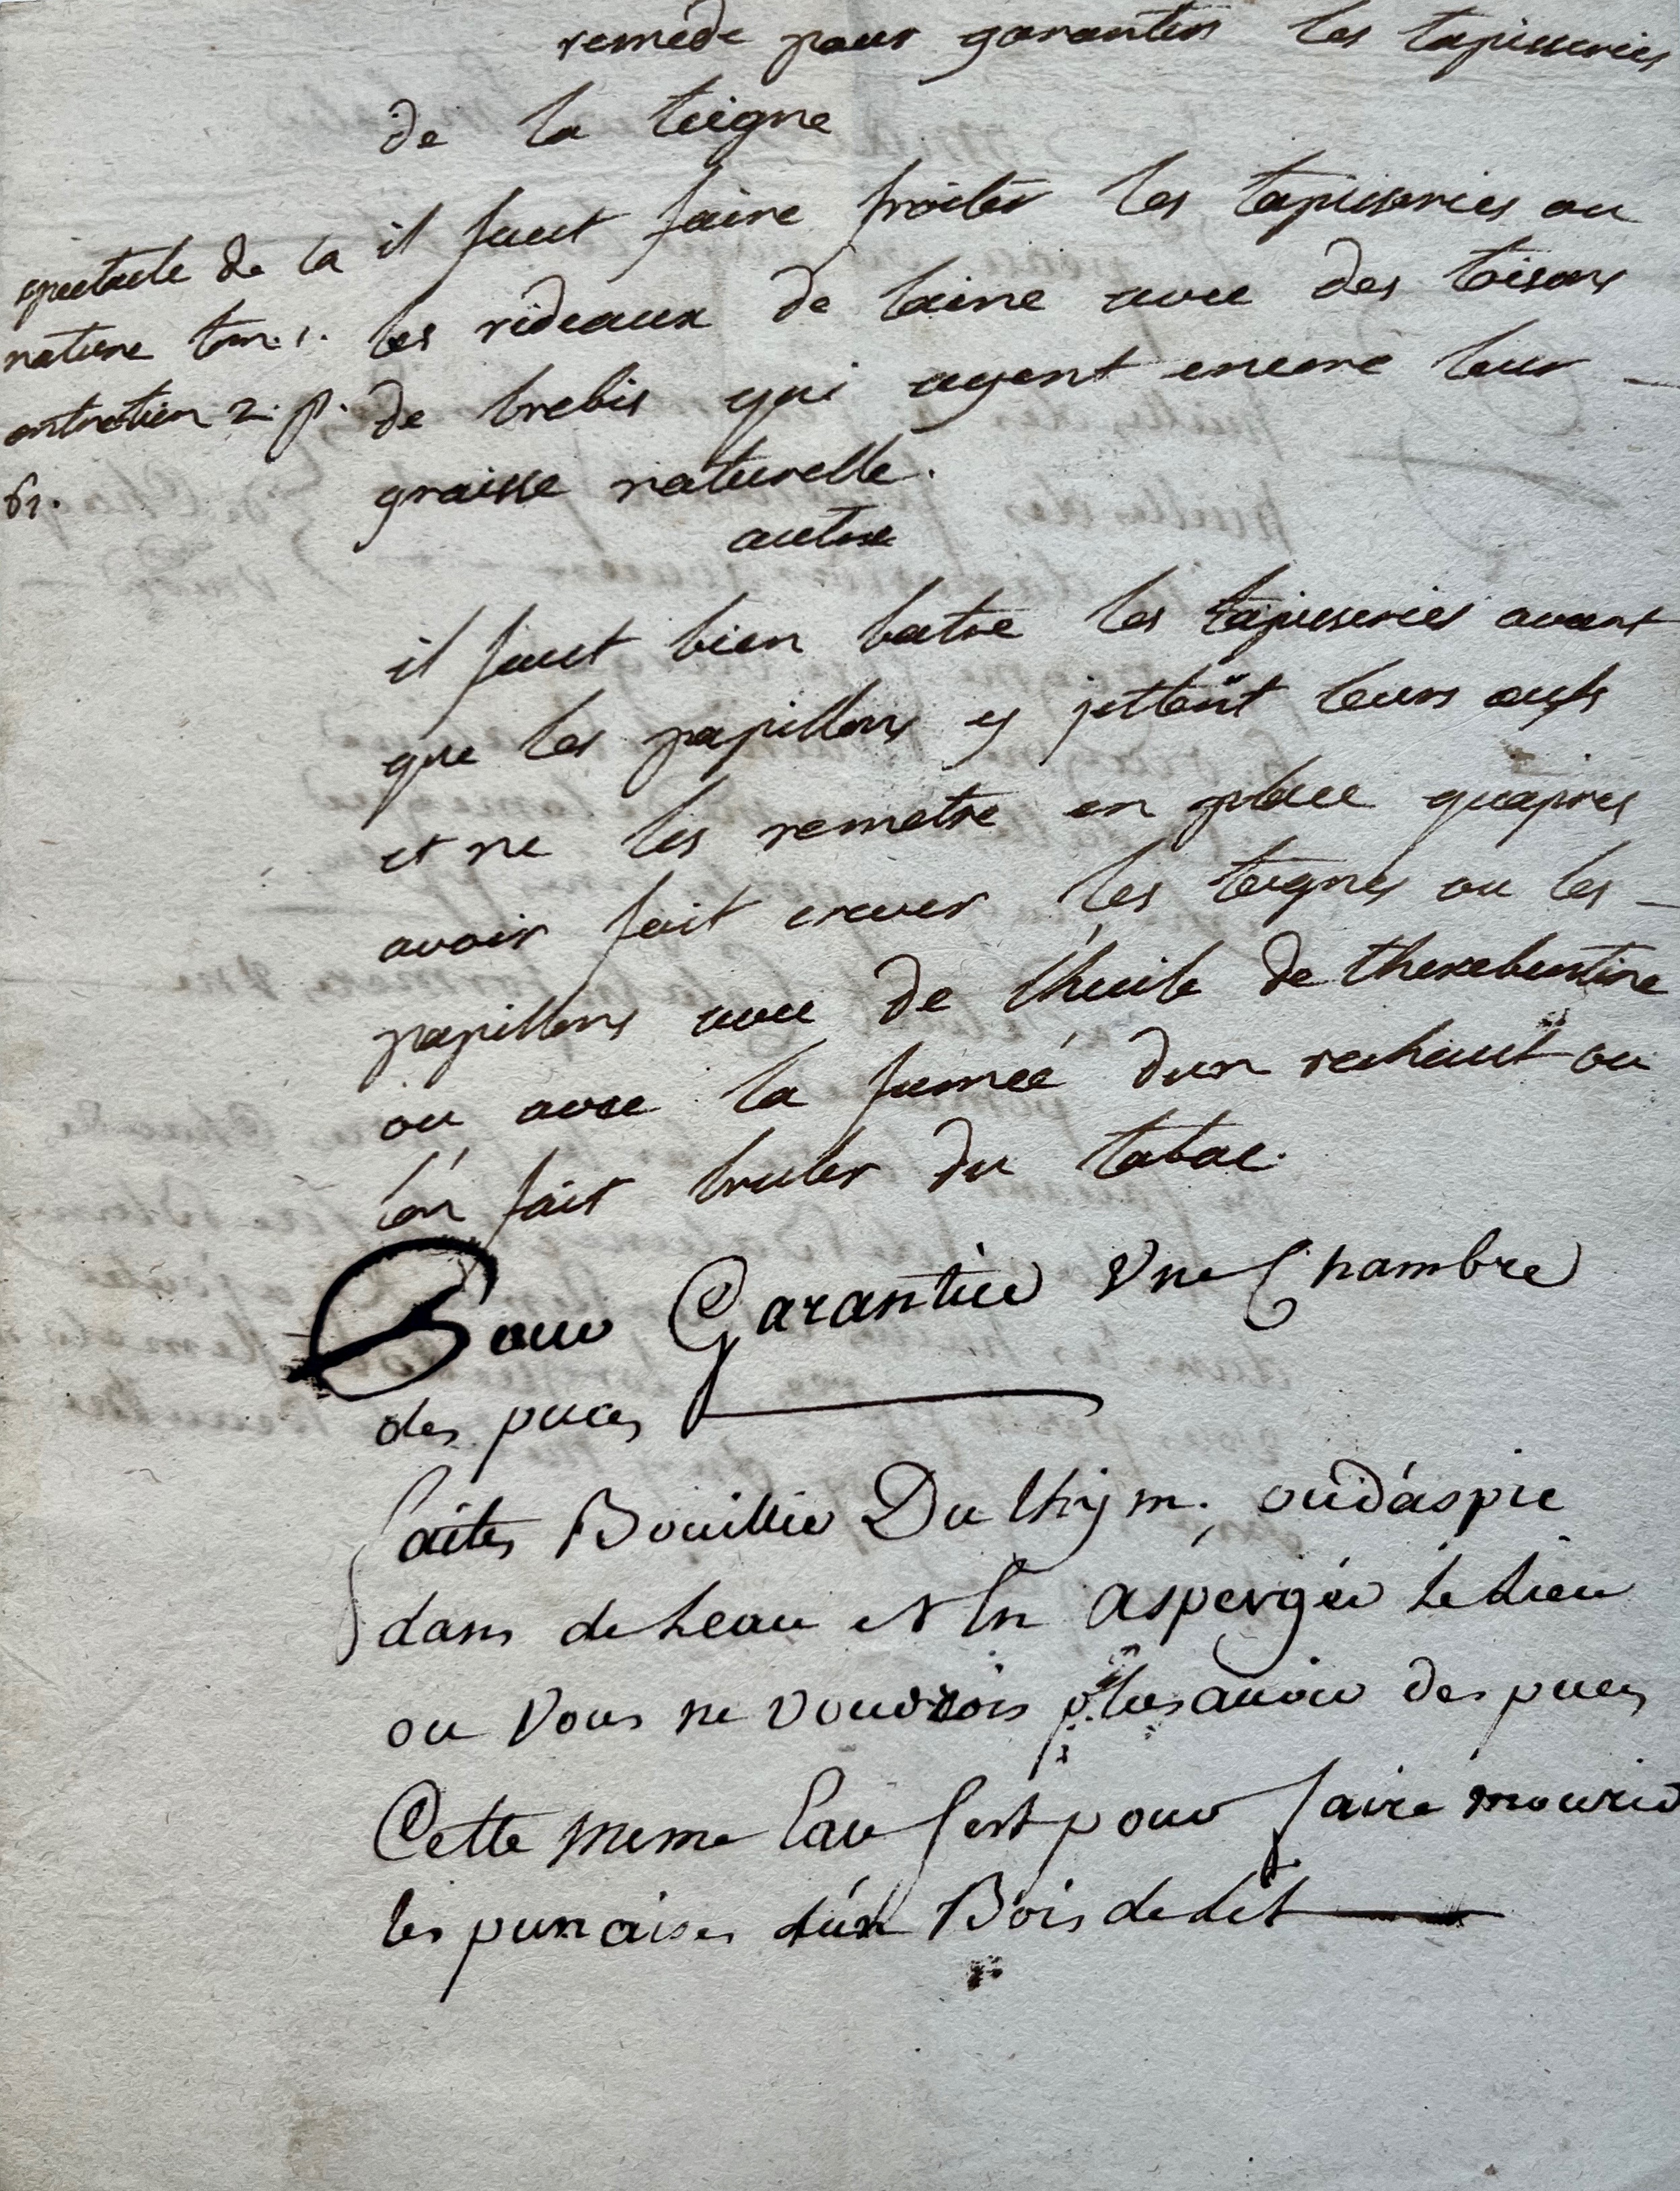 remede pour garantir les tapisseries
de la teigne
il faut faire froter les tapisseries ou
les rideaux de laine avec des toisons
de brebis qui ayent encore leur
graisse naturelle.
spectacle de la
nature tom. 1.
entretien 2. p.
61.
autre
il faut bien batre les tapisseries avant
que les papillons y jettent leurs oeufs
et ne les remetre en place quapres
avoir fait crever les teignes ou les
papillons avec de l'huile de therebentine
ou avec la fumée dun rechaut ou
l'on fait bruler du tabac.
Pour Garantir Une Chambre
des puces
faites Bouillir Du thym. ou d'aspic
dans de Leau et En asperger Le Lieu
ou Vous ne voudrois plus avoir des puces
Cette meme Eau sert pour faire mourir
les punaises d'un Bois de Lit